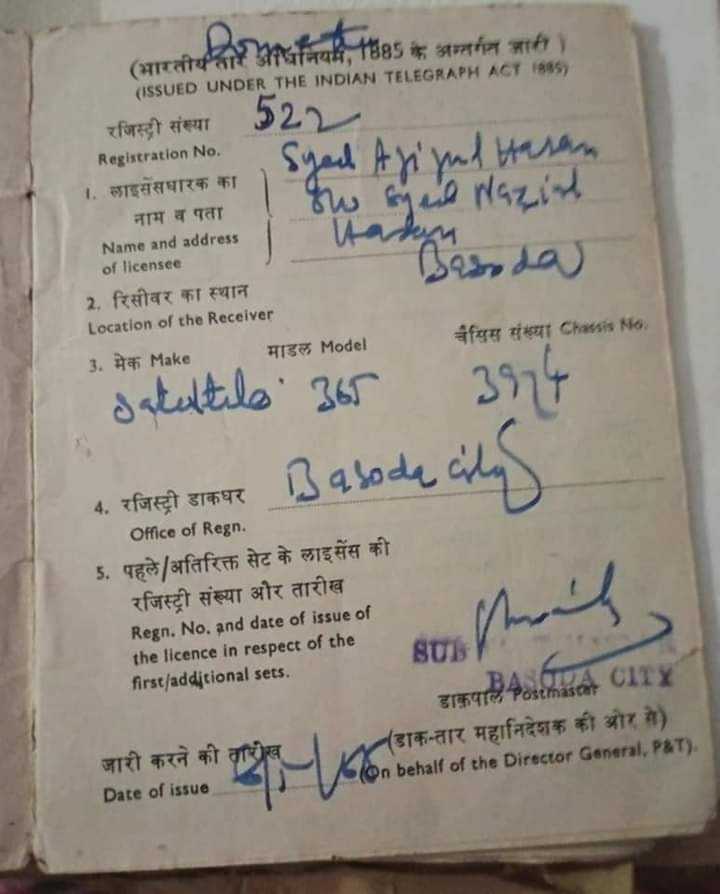 Domestic
(भारतीय तार अधिनियम, 1885 के अन्तर्गत जारी)
(ISSUED UNDER THE INDIAN TELEGRAPH ACT 1885)
रजिस्ट्री संख्या 522
Registration No.
1. लाइसेंसधारक का
नाम व पता
Name and address
of licensee
Syed Hasan
S/o Syed Nazir
Hasan
Basoda
2. रिसीवर का स्थान
Location of the Receiver
3. मेक Make माडल Model चैसिस संख्या Chassis No.
365 3974
4. रजिस्ट्री डाकघर Basoda city
Office of Regn.
5. पहले/अतिरिक्त सेट के लाइसेंस की
रजिस्ट्री संख्या और तारीख
Regn. No. and date of issue of
the licence in respect of the
first/additional sets.
SUB
BASODA CITY
डाकपाल Postmaster
(डाक-तार महानिदेशक की ओर से)
(On behalf of the Director General, P&T).
जारी करने की तारीख
Date of issue